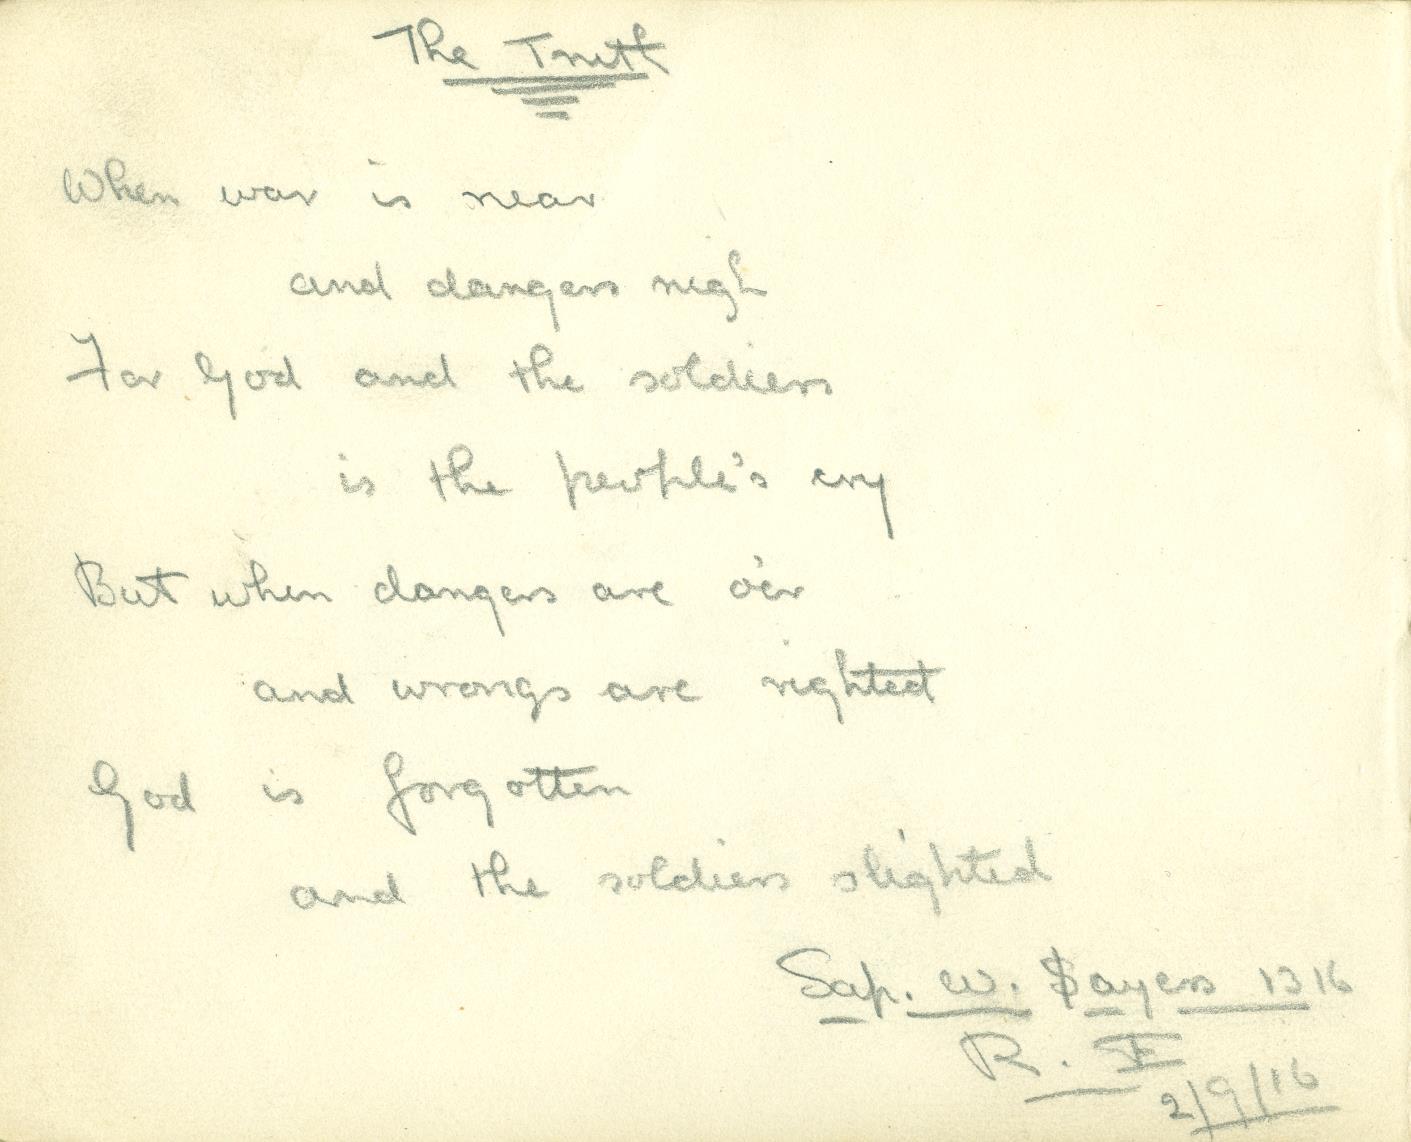 The Truth
When war is near
and dangers nigh
For God and the soldiers
is the people's cry
But when dangers are o'er
and wrongs are righted
God is forgotten
and the soldiers slighted
Sap. W. Sayers 1316
R. E
2/9/16